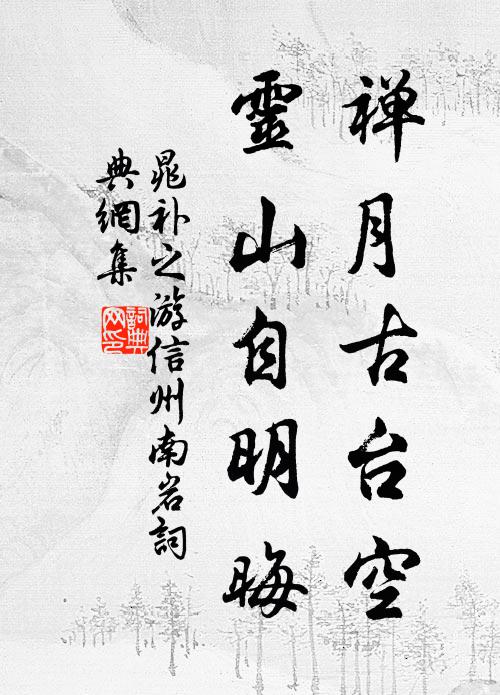 禅月古台空
靈山自明晦
晁补之游信州南岩詞
典網集
詞典网印